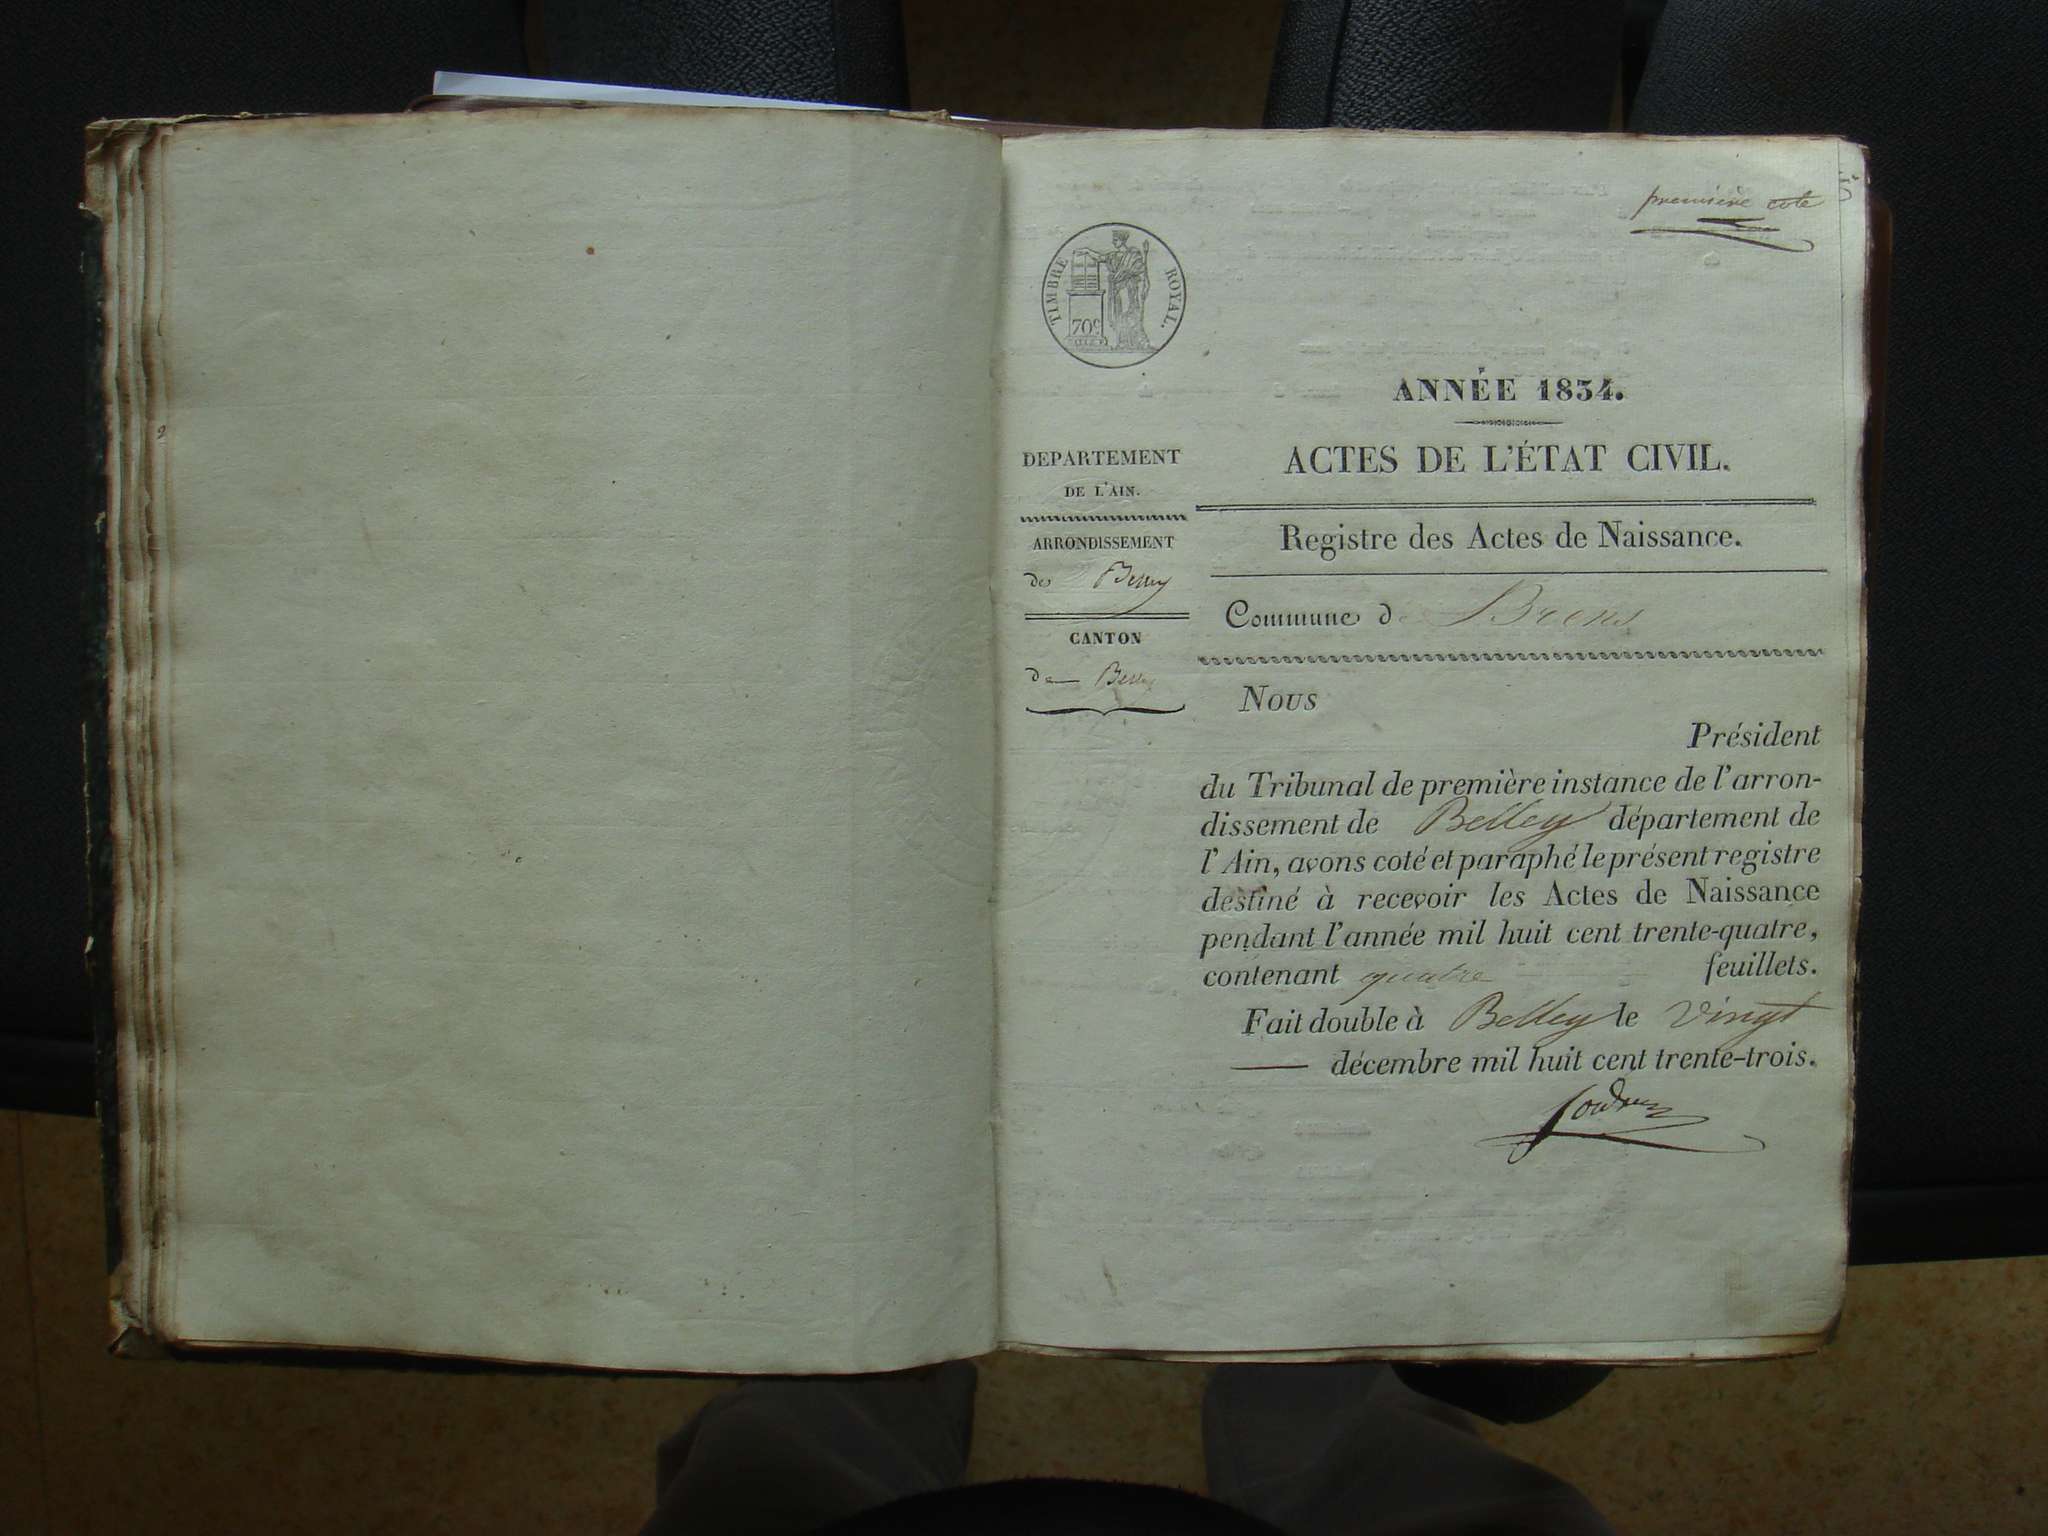 première cote
TIMBRE ROYAL.
70c
ANNÉE 1834.
ACTES DE L'ÉTAT CIVIL.
DEPARTEMENT
DE L'AIN.
ARRONDISSEMENT
de Belley
CANTON
de Belley
Registre des Actes de Naissance.
Commune de Brens
Nous
Président
du Tribunal de première instance de l'arron-
dissement de Belley département de
l'Ain, avons coté et paraphé le présent registre
destiné à recevoir les Actes de Naissance
pendant l'année mil huit cent trente-quatre,
contenant quatre feuillets.
Fait double à Belley le vingt
décembre mil huit cent trente-trois.